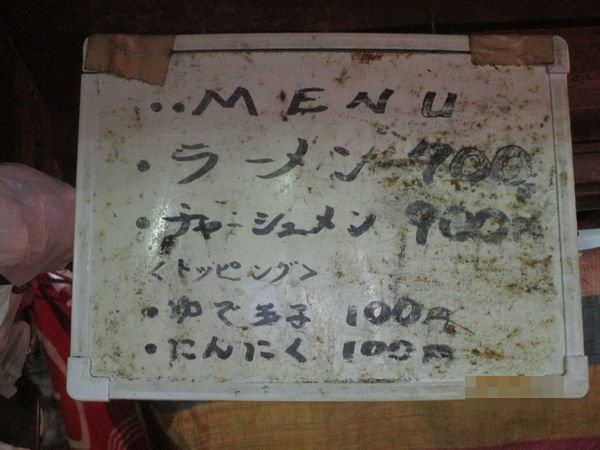 ..MENU..
・ラーメン 700円
・チャーシュメン 900円
<トッピング>
・ゆで玉子 100円
・にんにく 100円